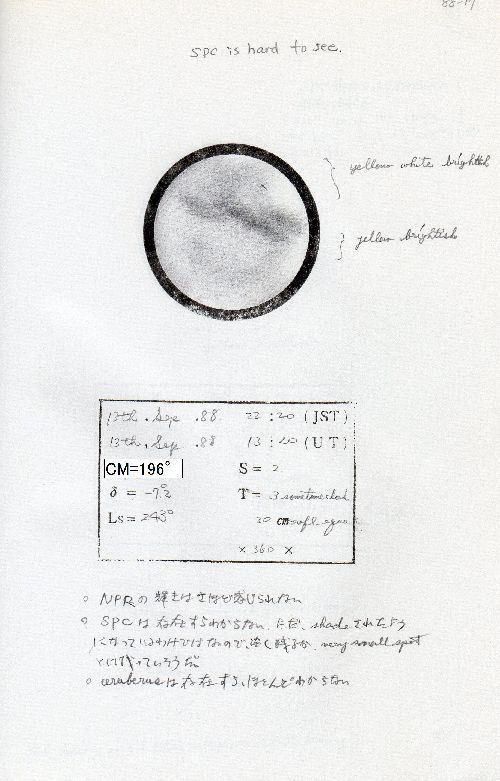 88-17
SPC is hard to see.
yellow white brightish
yellow brightish
13th . Sep .88 22 :20 (JST)
13th . Sep .88 13 :20 (UT)
CM=196° S = 2
δ = -7.°2 T = 3 sometime cloud
Ls = 243° 20 cm
× 360 ×
○ NPRの輝きはさほど感じられない
○ SPCは存在すらわからない. ただ、shadeされたよう
になっているわけではないので、淡く残るか very small spot
になっていそうだ
○ cerberusは存在すらほとんどわからない